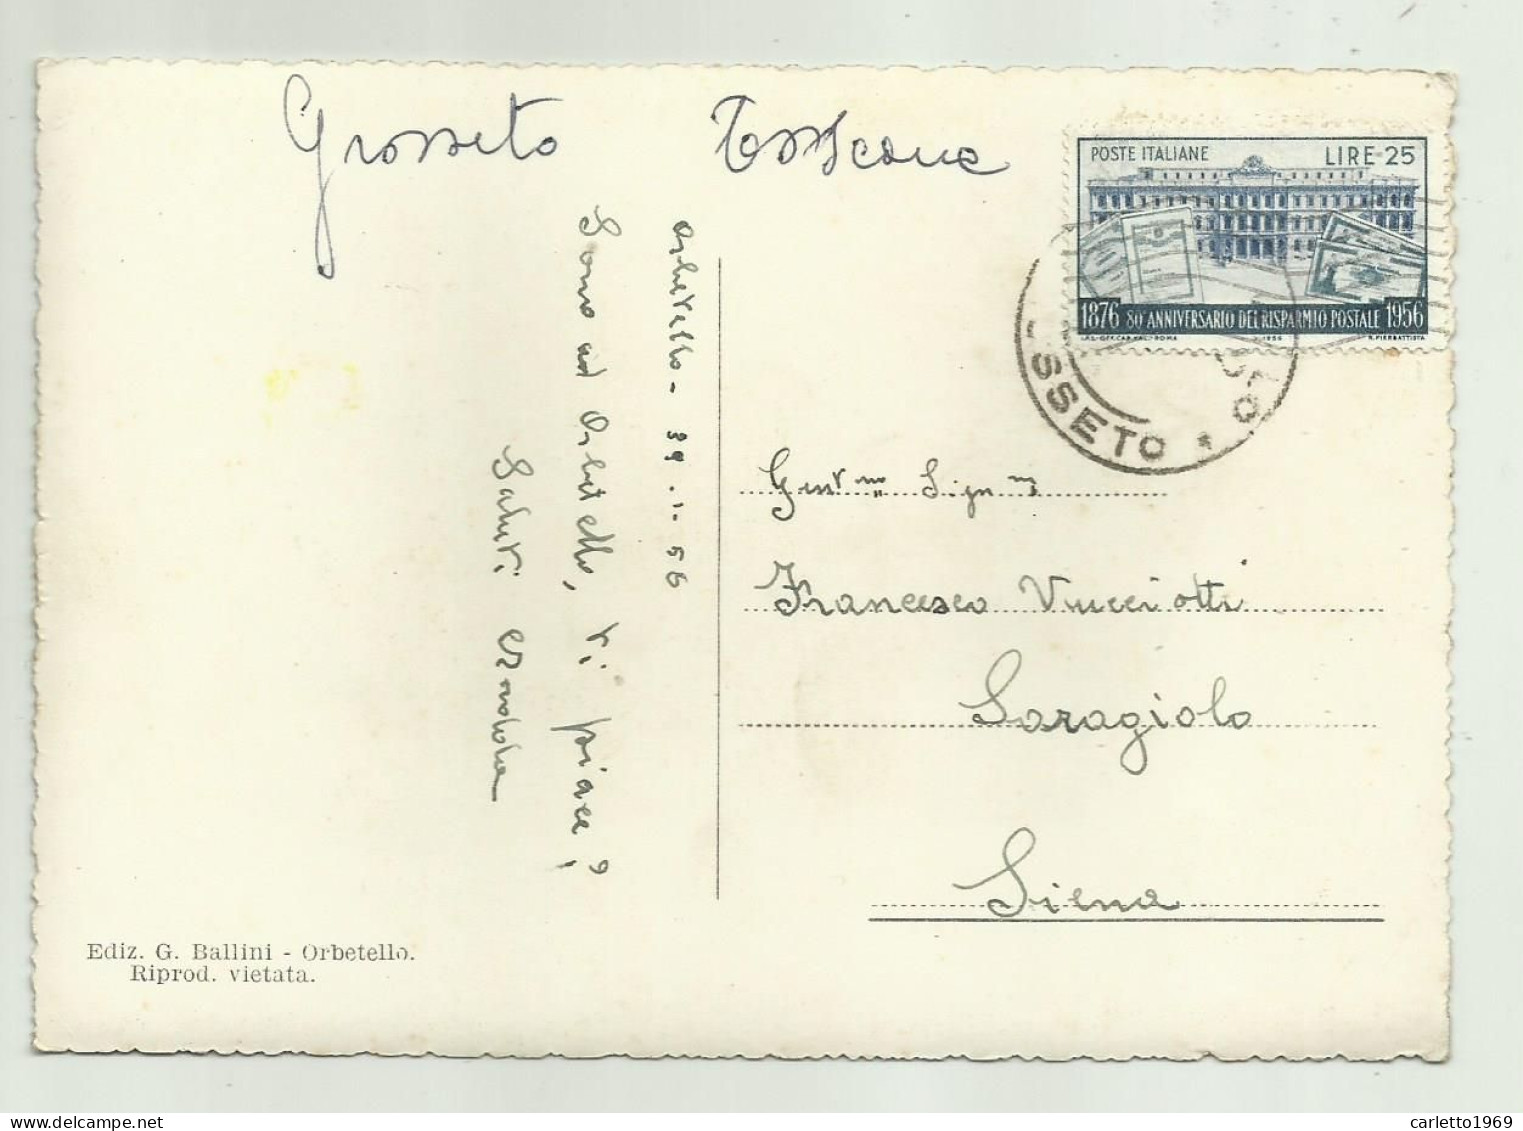 Grosseto Tosscana
POSTE ITALIANE LIRE 25
1876 80° ANNIVERSARIO DEL RISPARMIO POSTALE 1956
I.P.S.-OFF.CAR.VAL.-ROMA 1956 R. PIERBATTISTA
SSETO *
Orbetello - 39.1.56
Sono ad Orbetello, ti piace?
Saluti
Gent.mo Sign
Francesco Vucciotti
Saragiolo
Siena
Ediz. G. Ballini - Orbetello.
Riprod. vietata.
carletto1969